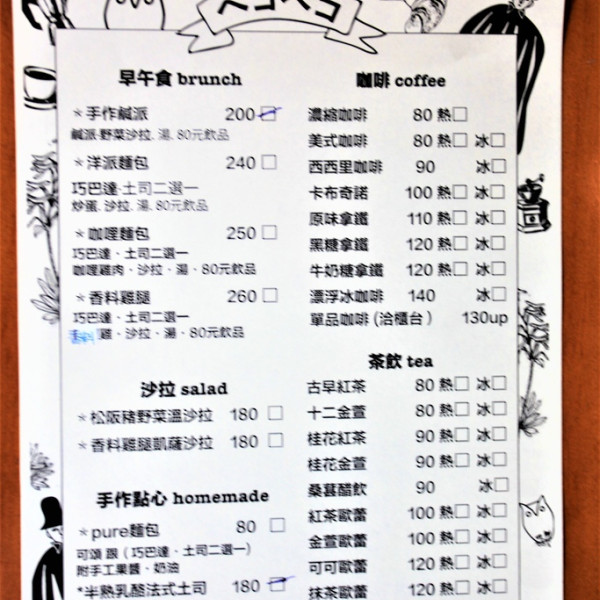 ペコペコ
早午食 brunch
＊手作鹹派 200
鹹派.野菜沙拉. 湯. 80元飲品
＊洋派麵包 240
巧巴達‧土司二選一
炒蛋. 沙拉. 湯. 80元飲品
＊咖哩麵包 250
巧巴達‧土司二選一
咖哩雞肉‧沙拉‧湯‧80元飲品
＊香料雞腿 260
巧巴達‧土司二選一
雞‧沙拉‧湯‧80元飲品
沙拉 salad
＊松阪豬野菜溫沙拉 180
＊香料雞腿凱薩沙拉 180
手作點心 homemade
＊pure麵包 80
可頌 跟（巧巴達‧土司二選一）
附手工果醬‧奶油
*半熟乳酪法式土司 180
咖啡 coffee
濃縮咖啡 80 熱
美式咖啡 80 熱 冰
西西里咖啡 90 冰
卡布奇諾 100 熱 冰
原味拿鐵 110 熱 冰
黑糖拿鐵 120 熱 冰
牛奶糖拿鐵 120 熱 冰
漂浮冰咖啡 140 冰
單品咖啡 (洽櫃台 ) 130up
茶飲 tea
古早紅茶 80 熱 冰
十二金萱 80 熱 冰
桂花紅茶 90 熱 冰
桂花金萱 90 熱 冰
桑葚醋飲 90 冰
紅茶歐蕾 100 熱 冰
金萱歐蕾 100 熱 冰
可可歐蕾 120 熱 冰
抹茶歐蕾 120 熱 冰